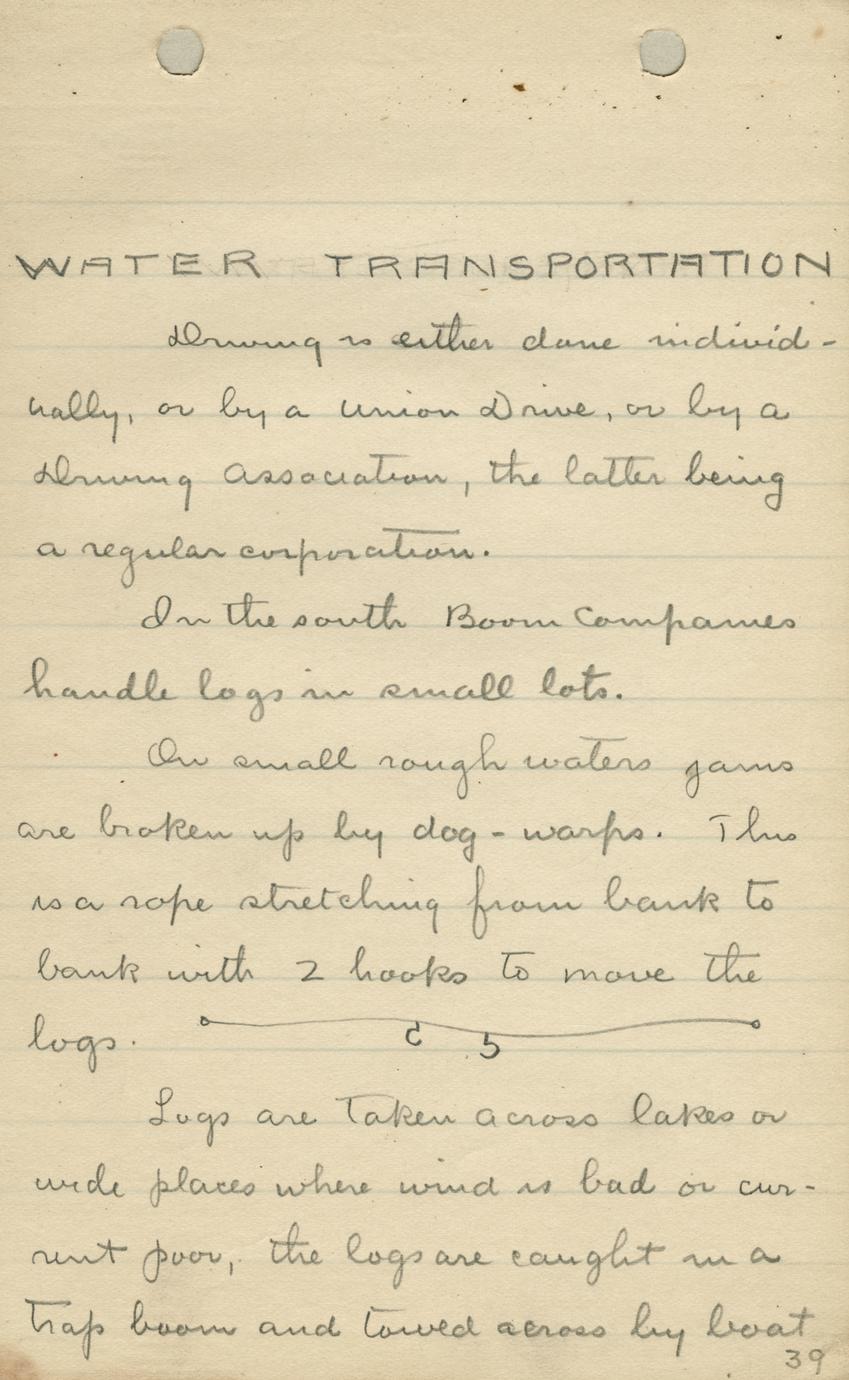 WATER TRANSPORTATION
Driving is either done individ-
ually, or by a Union Drive, or by a
Driving Association, the latter being
a regular corporation.
In the south Boom Companies
handle logs in small lots.
On small rough waters jams
are broken up by dog-warps. This
is a rope stretching from bank to
bank with 2 hooks to move the
logs.
Logs are taken across lakes or
wide places where wind is bad or cur-
rent poor, the logs are caught in a
trap boom and towed across by boat
39